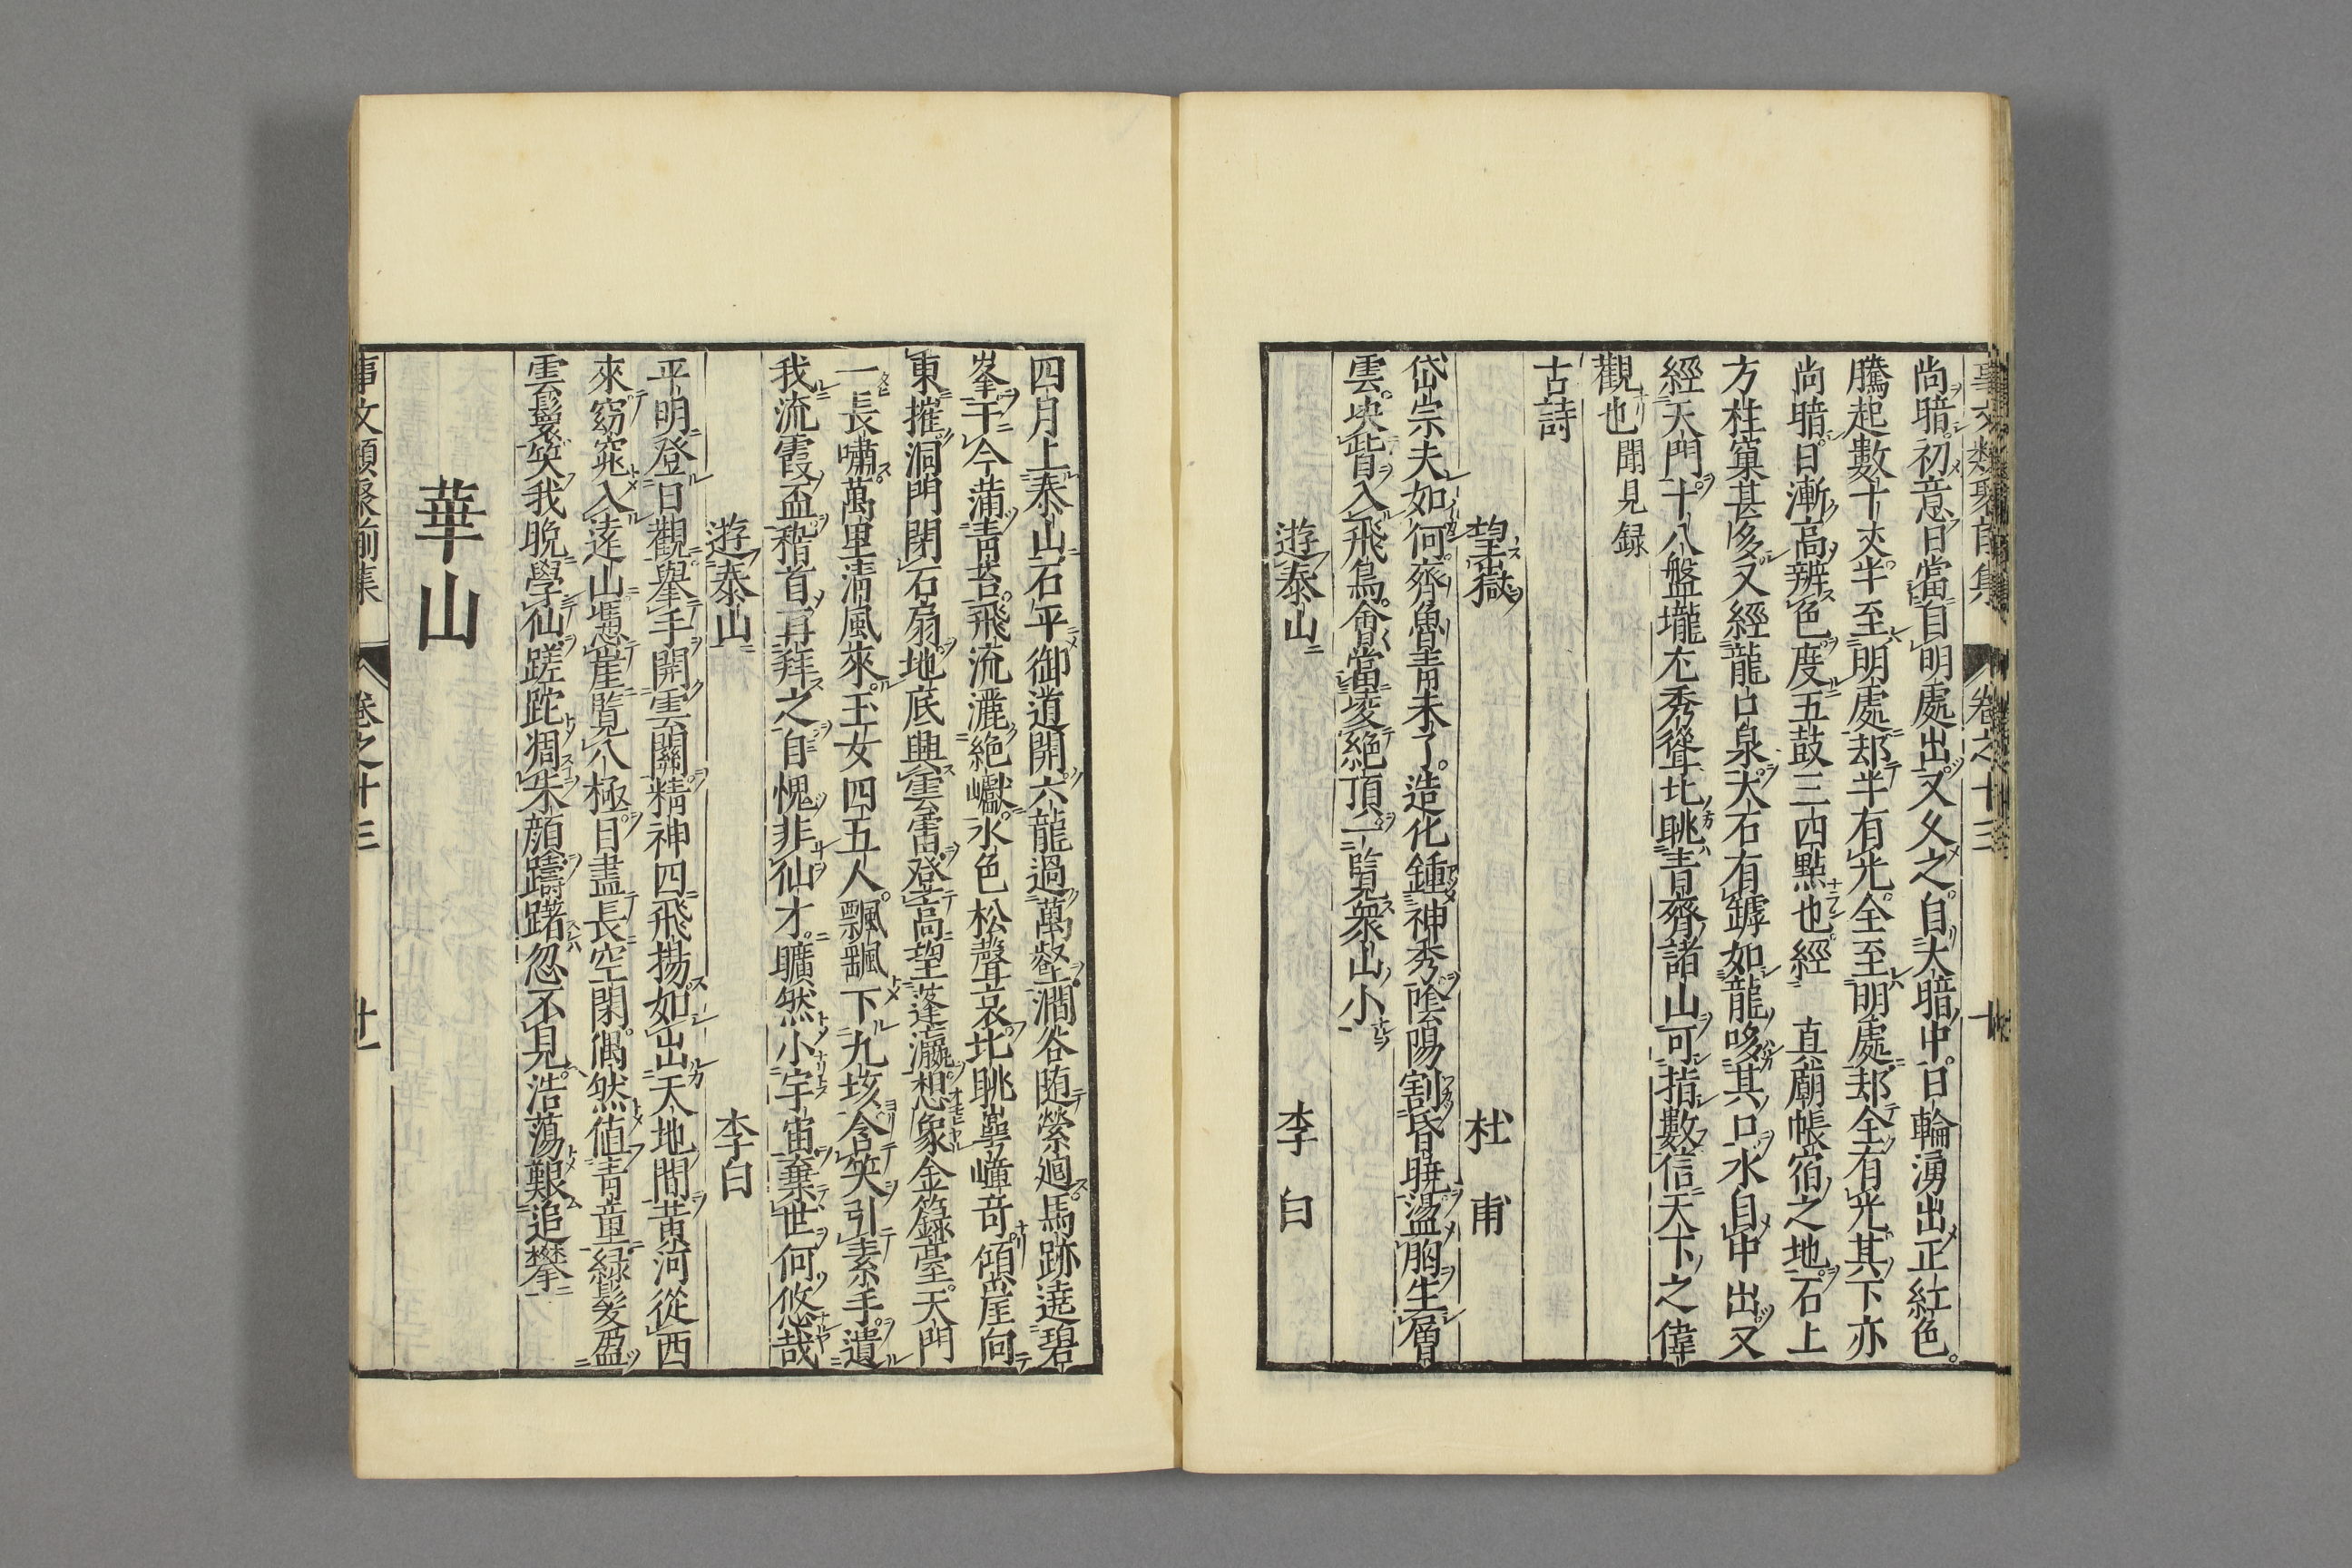 事文類聚前集 卷之十三
尚暗初意日當自明處出又久之自大暗中日輪湧出正紅色
騰起數十丈半至明處却半有光全至明處却全有光其下亦
尚暗日漸高辨色度五鼓三四點也經 直廟帳宿之地石上
方柱窠甚多又經龍口泉大石有罅如龍哆其口水自中出又
經天門十八盤壠尤秀聳北眺青齊諸山可指數信天下之偉
觀也 聞見録
古詩
望嶽 杜甫
岱宗夫如何齊魯青未了造化鍾神秀陰陽割昏曉盪胸生層
雲决眥入飛鳥會當凌絕頂一覽衆山小
遊泰山 李白
四月上泰山石平御道開六龍過萬壑澗谷随縈迴馬跡遶碧
峯于今蒲青苔飛流灑絕巘水色松聲哀北眺崿嶂竒傾崖向
東摧洞門閉石扇地底興雲雷登高望蓬瀛想象金籙臺天門
一長嘯萬里清風來玉女四五人飄颻下九垓含笑引素手遺
我流霞盃稽首再拜之自愧非仙才曠然小宇宙棄世何悠哉
遊泰山 李白
平明登日觀舉手開雲關精神四飛揚如出天地間黃河從西
來窈窕入遠山憑崖覽八極目盡長空閑偶然値青童緑髮盈
雲鬟笑我晩學仙蹉跎凋朱顔躊躇忽不見浩蕩難追攀
華山
事文類聚前集 卷之十三 廿一